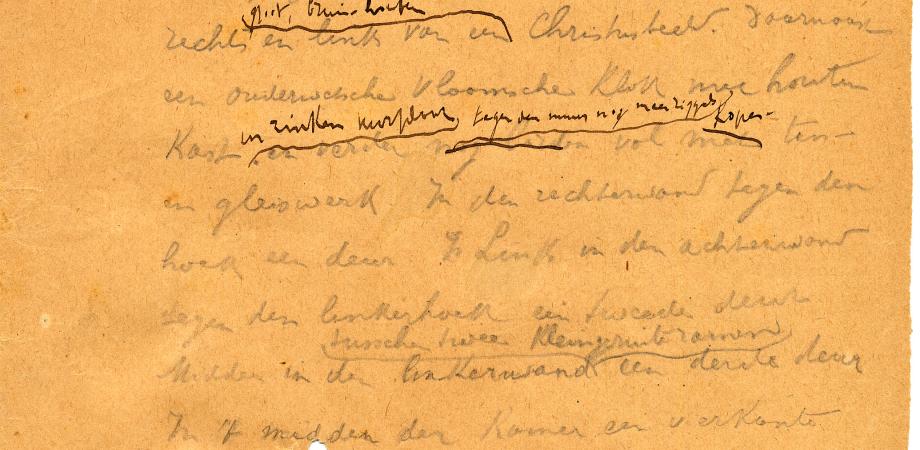 groot, bruin-houten
rechts en links van een Christusbeeld. Daarnaast
een ouderwetsche Vlaamsche Klok mee houten
in zinken tegen den muur nog Koper-
Kast, en verder vol mee ten-
en gleiswerk. In den rechterwand tegen den
hoek een deur Links in den achterwand
tegen den linkerhoek een tweede deur
tusschen twee Kleingeruite ramen
Midden in den linkerwand een derde deur
In 't midden der Kamer een vierkante